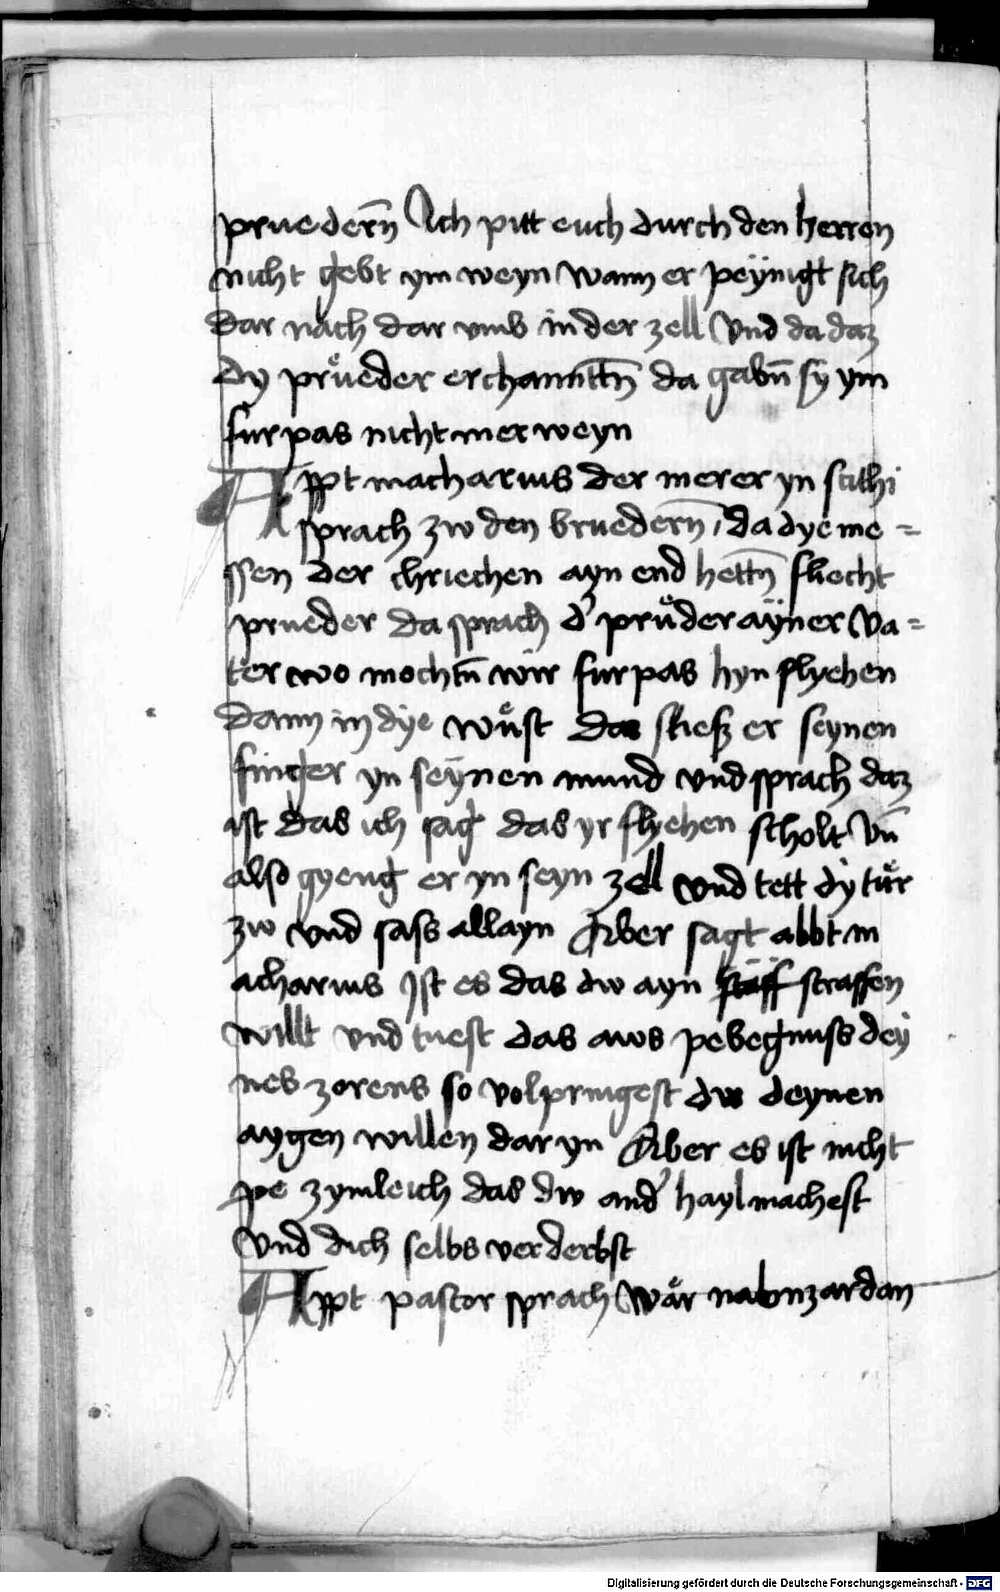 pruedern̄ Ich pitt euch durch den herren
nicht gebt ym weyn wann er peÿnigt sich
dar nach dar vmb in der zell Vnd da daz
dy průeder erchannttn̄ da gabn̄ sÿ ym
fur pas nicht mer weyn
Appt macharius der merer yn scithi
sprach zw den bruedern̄, da dye me =
ssen der chriechen ayn end hettn̄ fliecht
prueder da sprach d' průder aÿner Va =
ter wo mochtn̄ wir furpas hyn flyehen
dann in dye wůst da stiesz er seynen
finger yn seÿnen mund vnd sprach daz
ist das ich sag das yr flyehen scholt Vn̄
also gyeng er yn seyn zell vnd tett dy tůr
zw vnd sass allayn Aber sagt abbt m
acharius Ist es das dw ayn straff straffen
willt vnd tuest das aws pebegnuss dey
nes zorens so volpringest dw deynen
aygen willen dar yn Aber es ist nicht
pe zymleich das dw and' hayl machest
Vnd dich selbs verderbst
Appt pastor sprach Wår nabuzardan
Digitalisierung gefördert durch die Deutsche Forschungsgemeinschaft - DFG